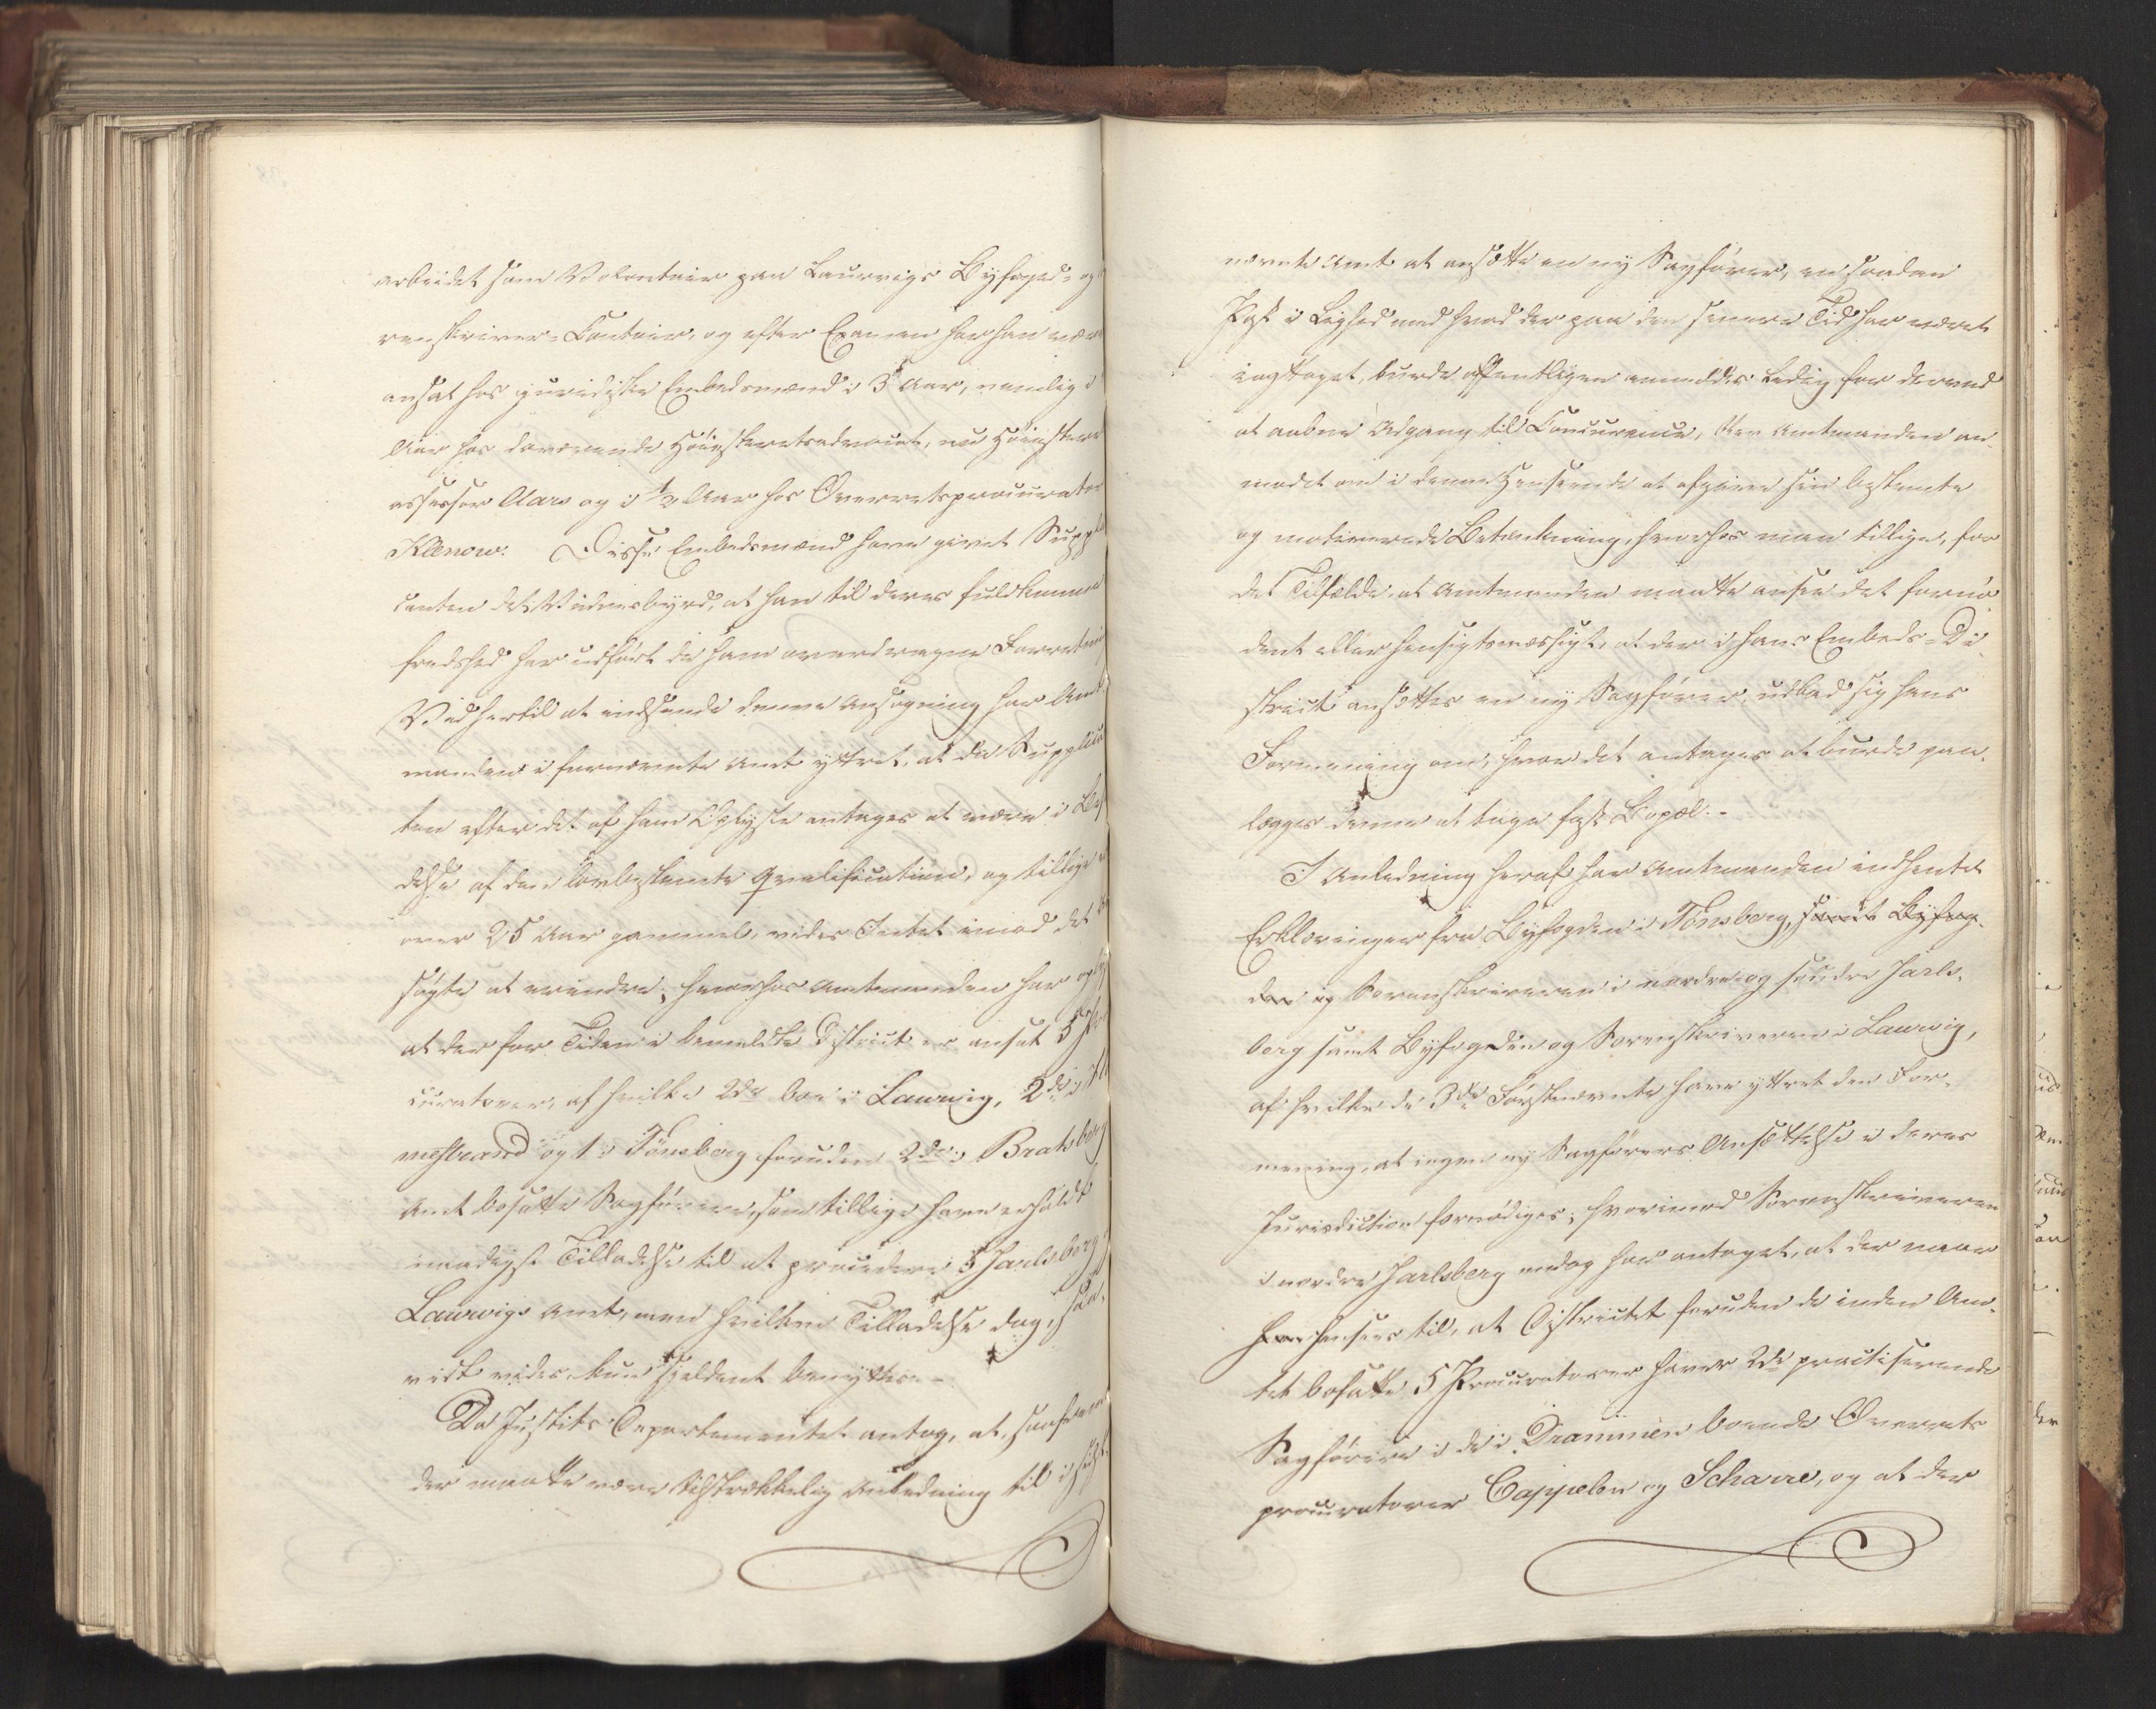 arbeidet som Volontair paa Laurvigs Byfoged- og
renskriver-Contoir, og efter Examen har han vær
ansat hos juridiske Embedsmænd i 3 Aar, nemlig i
Aar hos daværende Höiesteretsadvocat, nu Höiester
assessor Aars og i ½ Aar hos Overretsprocurator
Klenow. Disse Embedsmænd have givet Suppli
canten det Vidnesbyrd, at han til deres fuldkomne
fredshed har udført de ham overdragne Forretnin
Ved hertil at indsende denne Ansøgning har Amt
manden i fornævnte Amt yttret, at da Supplican
ten efter det af ham Oplyste antages at være i Besid
delse af den lovbestemte Qvalification, og tillige er
over 25 Aar gammel, vides Intet imod det An
søgte at erindre; hvorhos Amtmanden har oply
at der for Tiden i bemeldte District er ansat 5 Pro
curatorer, af hvilke 2de boe i Laurvig, 2de i Hol
mestrand og 1 i Tönsberg foruden 2de i Bratsberg
Amt bosatte Sagførere, som tillige have erholdt
naadigst Tilladelse til at procedere i Jarlsberg
Laurvigs Amt, men hvilken Tilladelse dog, saa-
vidt vides, kun sjeldent benyttes.-
Da Justits-Departementet antog, at, saafremt
der maatte være tilstrækkelig Anledning til i sidst-
nævnte Amt at ansætte en ny Sagfører, en saadan
Post i Lighed med hvad der paa den senere Tid har været
iagttaget, burde offentligen anmeldes ledig for derved
at aabne Adgang til Concurrence, blev Amtmanden an-
modet om i denne Henseende at afgive sin bestemte
og motiverede Betænkning, hvorhos man tillige, for
det Tilfælde, at Amtmanden maatte ansee det fornö-
dent eller hensigtsmæssigt, at der i hans Embeds-Di-
strict ansættes en ny Sagfører, udbad sig hans
Formening om, hvor det antages at burde paa-
lægges denne at tage fast Bopæl.-
I Anledning heraf har Amtmanden indhentet
Erklæringer fra Byfogden i Tönsberg, samt Byfog-
den og Sorenskriveren i nordre og söndre Jarls-
berg samt Byfogden og Sorenskriveren i Laurvig,
af hvilke de 3de Förstnævnte have yttret den For-
mening, at ingen ny Sagförers Ansættelse i deres
Jurisdiction fornödiges; hvorimod Sorenskriveren
i nordre Jarlsberg endog har antaget, at der naar
hen hensees til, at Districtet foruden de inden Am-
tet bosatte 5 Procuratorer haver 2de practiserende
Sagförere i de i Drammen boende Overrets
procuratorer Cappelen og Scharre, og at der